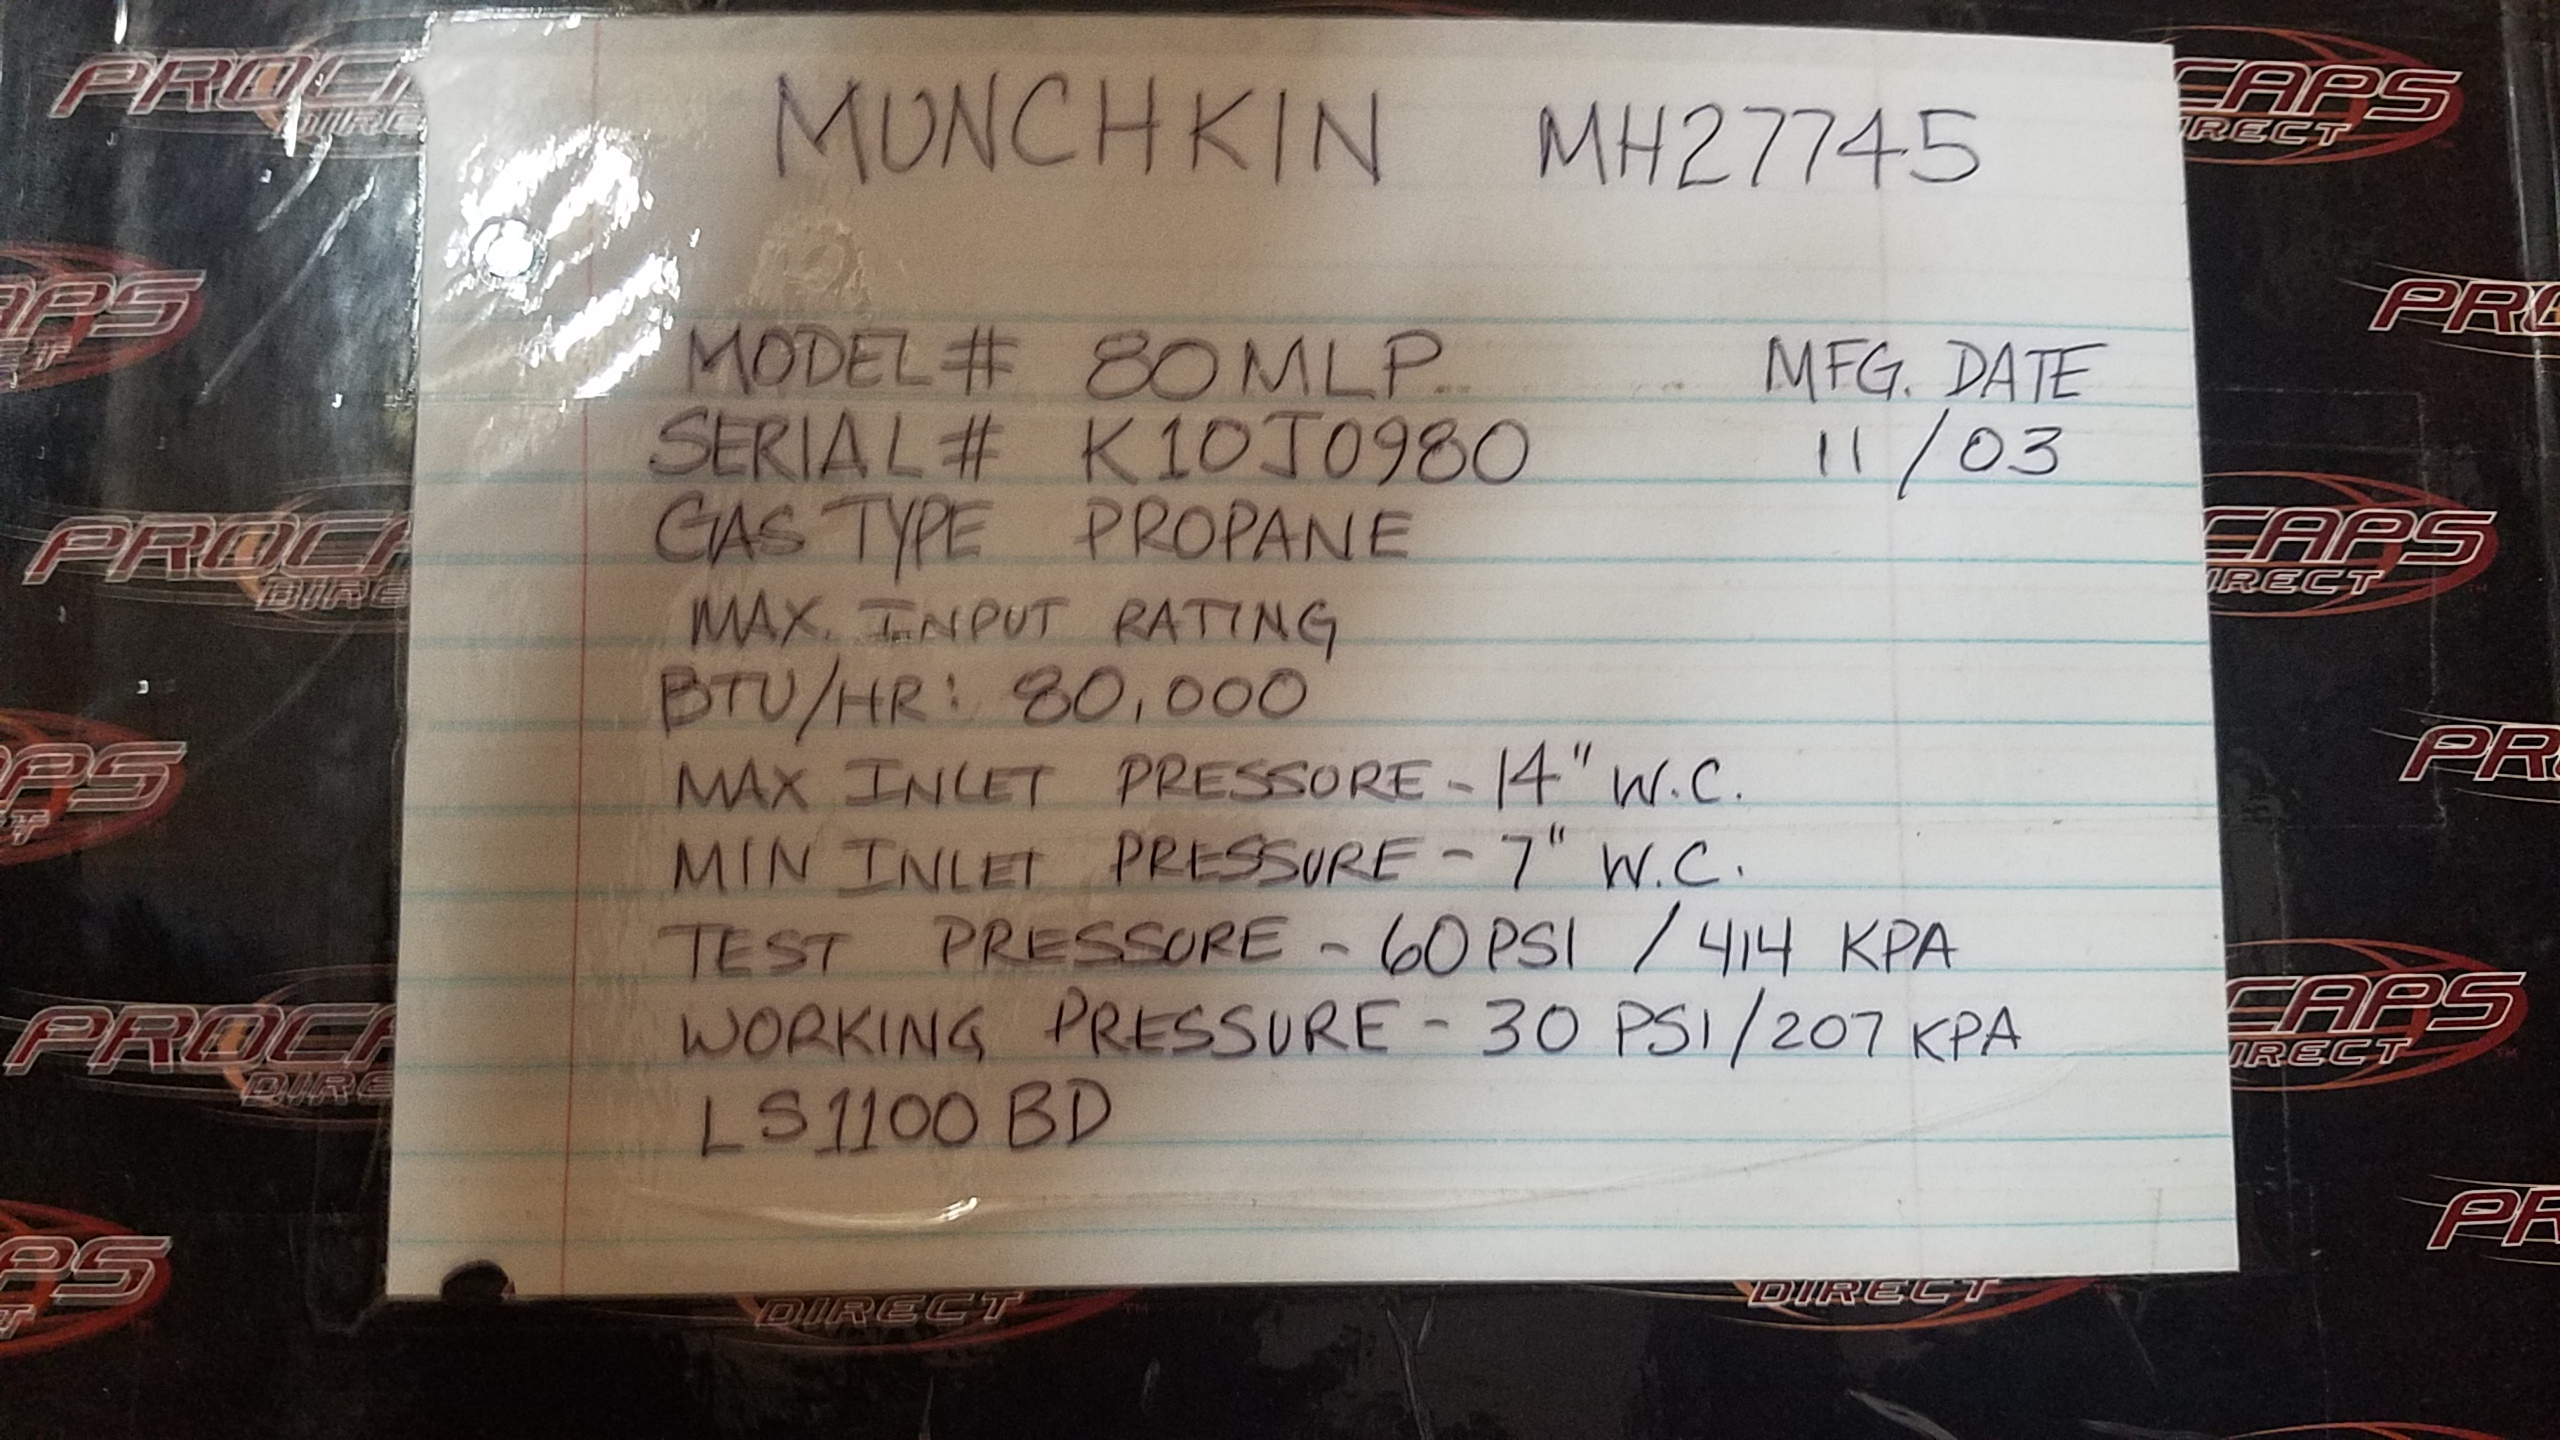 MUNCHKIN MH27745
MODEL# 80MLP MFG. DATE
SERIAL# K10J0980 11/03
GAS TYPE PROPANE
MAX. INPUT RATING
BTU/HR: 80,000
MAX INLET PRESSURE - 14" W.C.
MIN INLET PRESSURE - 7" W.C.
TEST PRESSURE - 60 PSI / 414 KPA
WORKING PRESSURE - 30 PSI/207 KPA
LS1100BD
PROCAPS
DIRECT